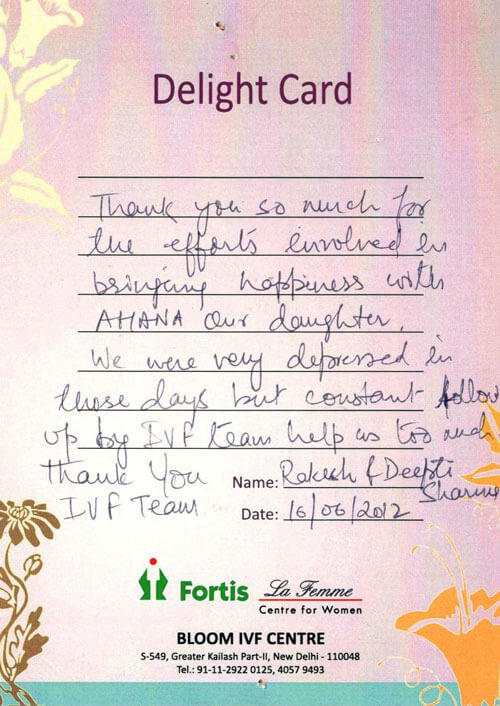 Delight Card
Thank you so much for
the efforts involved in
bringing happiness with
AHANA our daughter.
We were very depressed in
those days but constant follow
up by IVF team help us too much
Thank You
IVF Team
Name: Rakesh & Deepti
Sharma
Date: 16/06/2012
Fortis La Femme
Centre for Women
BLOOM IVF CENTRE
S-549, Greater Kailash Part-II, New Delhi - 110048
Tel.: 91-11-2922 0125, 4057 9493